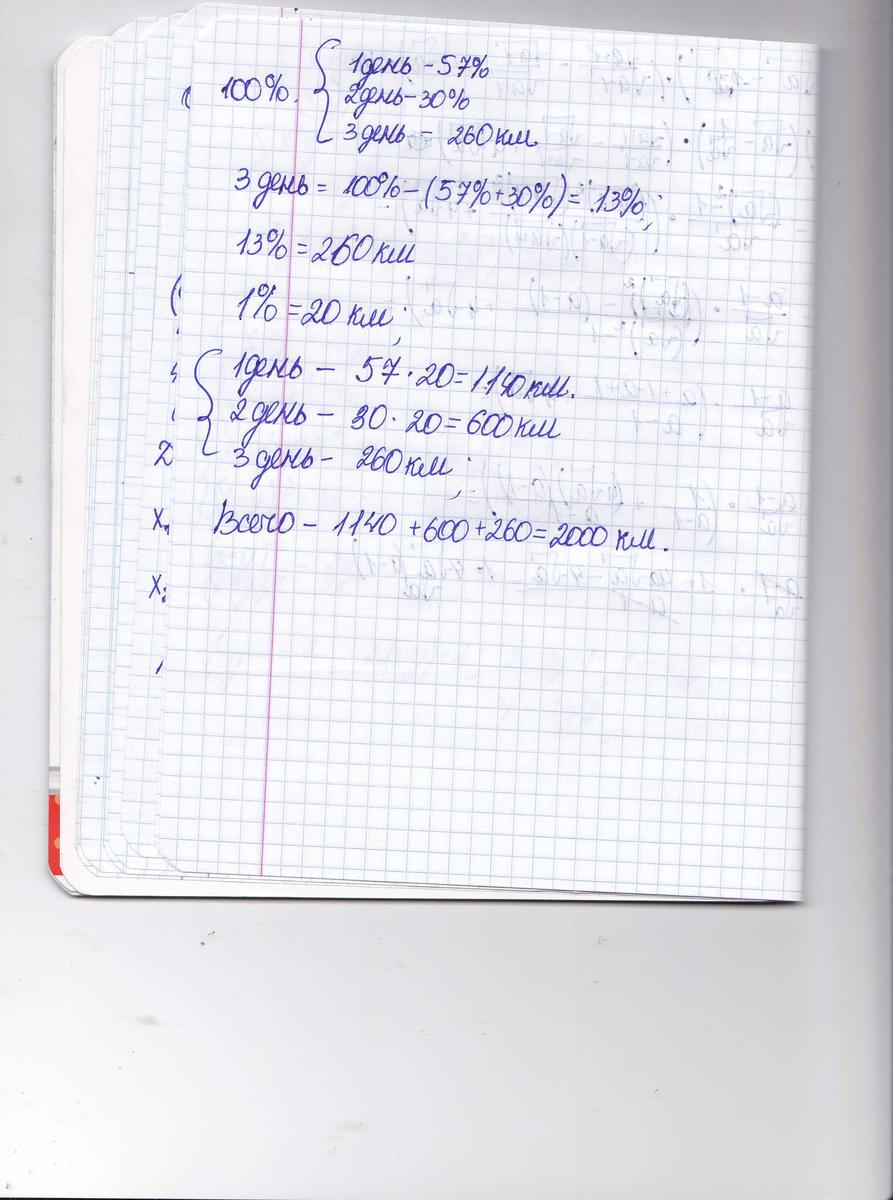 100%. { 1день - 57%
2день - 30%
3 день - 260 км.
3 день = 100% - (57% + 30%) = 13%;
13% = 260 км
1% = 20 км;
1день - 57 · 20 = 1140 км.
2 день - 30 · 20 = 600 км
3 день - 260 км;
Всего - 1140 + 600 + 260 = 2000 км.